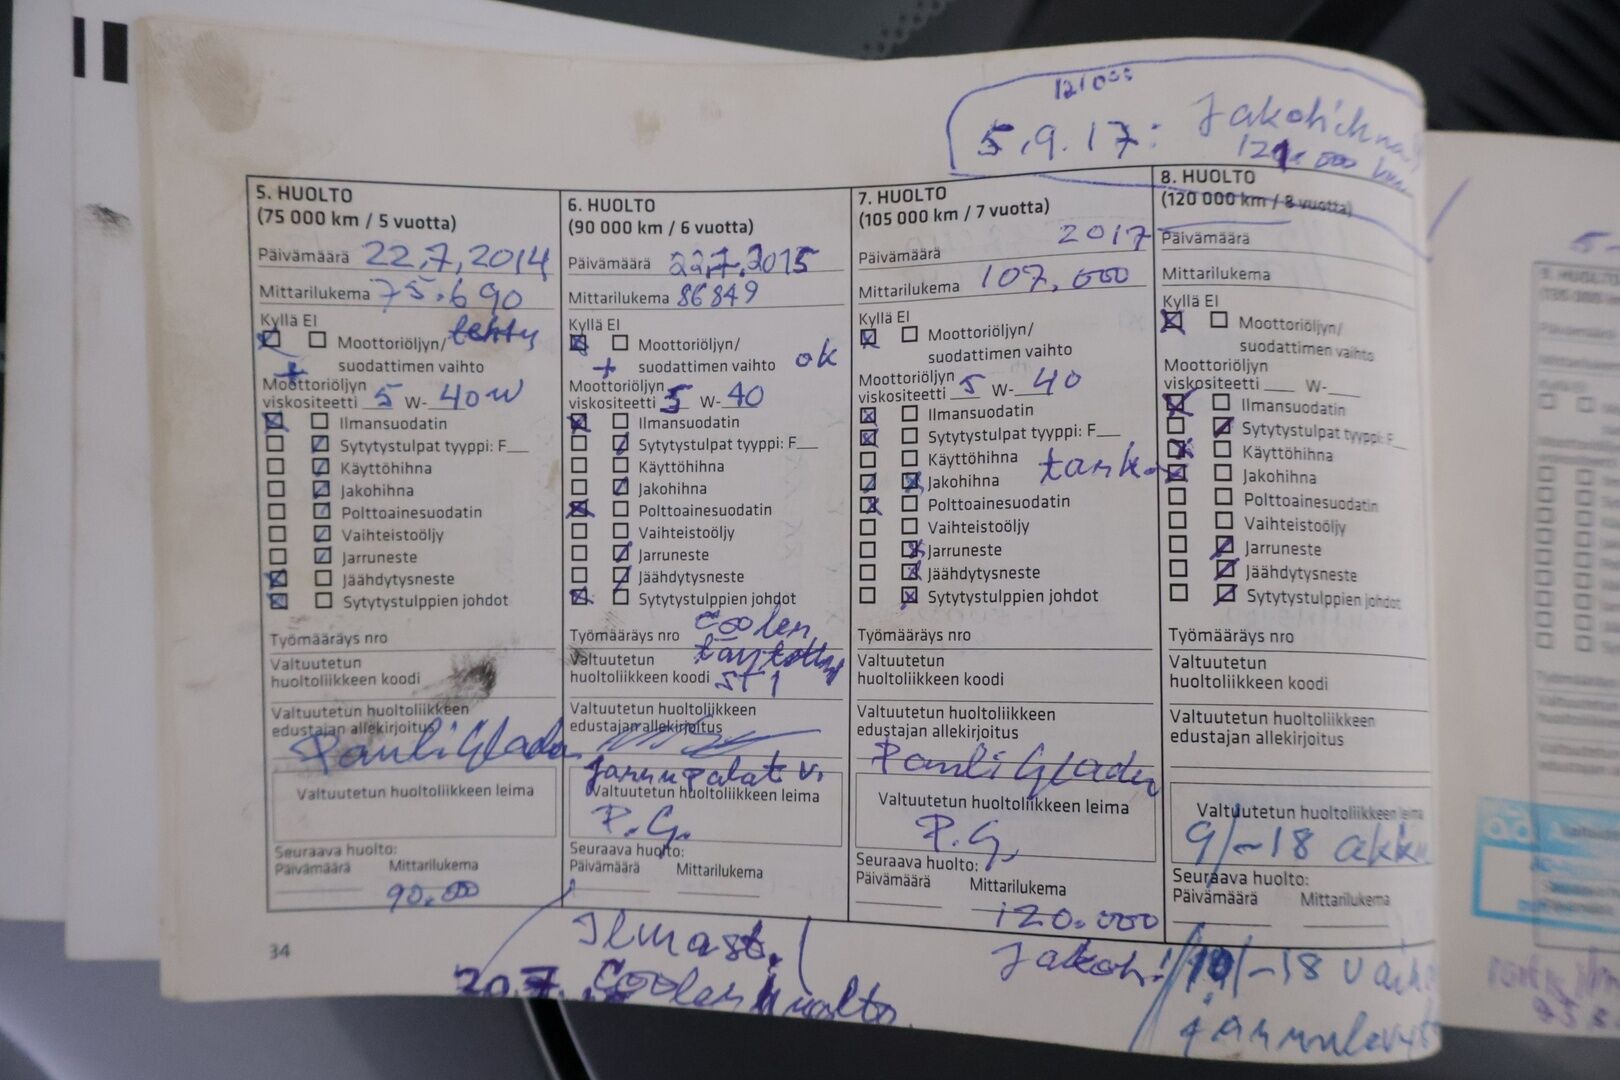 121000
5.9.17: Jakohihna
121.000 km
5. HUOLTO
(75 000 km / 5 vuotta)
Päivämäärä 22.7.2014
Mittarilukema 75.690
Kyllä EI
Moottoriöljyn/ tehty
suodattimen vaihto
+
Moottoriöljyn
viskositeetti 5 W- 40 W
Ilmansuodatin
Sytytystulpat tyyppi: F__
Käyttöhihna
Jakohihna
Polttoainesuodatin
Vaihteistoöljy
Jarruneste
Jäähdytysneste
Sytytystulppien johdot
Työmääräys nro
Valtuutetun
huoltoliikkeen koodi
Valtuutetun huoltoliikkeen
edustajan allekirjoitus
Valtuutetun huoltoliikkeen leima
Seuraava huolto:
Päivämäärä Mittarilukema
90.000
6. HUOLTO
(90 000 km / 6 vuotta)
Päivämäärä 22.7.2015
Mittarilukema 86849
Kyllä EI
Moottoriöljyn/
suodattimen vaihto ok
+
Moottoriöljyn
viskositeetti 5 W- 40
Ilmansuodatin
Sytytystulpat tyyppi: F__
Käyttöhihna
Jakohihna
Polttoainesuodatin
Vaihteistoöljy
Jarruneste
Jäähdytysneste
Sytytystulppien johdot
Työmääräys nro
Valtuutetun
huoltoliikkeen koodi ST1
Valtuutetun huoltoliikkeen
edustajan allekirjoitus
Jarrupalat v.
Valtuutetun huoltoliikkeen leima
P.G.
Seuraava huolto:
Päivämäärä Mittarilukema
7. HUOLTO
(105 000 km / 7 vuotta)
2017
Päivämäärä
Mittarilukema 107,000
Kyllä EI
Moottoriöljyn/
suodattimen vaihto
Moottoriöljyn
viskositeetti 5 W- 40
Ilmansuodatin
Sytytystulpat tyyppi: F__
Käyttöhihna
Jakohihna
Polttoainesuodatin
Vaihteistoöljy
Jarruneste
Jäähdytysneste
Sytytystulppien johdot
Työmääräys nro
Valtuutetun
huoltoliikkeen koodi
Valtuutetun huoltoliikkeen
edustajan allekirjoitus
Valtuutetun huoltoliikkeen leima
P.G.
Seuraava huolto:
Päivämäärä Mittarilukema
120.000
8. HUOLTO
(120 000 km / 8 vuotta)
Päivämäärä
Mittarilukema
Kyllä EI
Moottoriöljyn/
suodattimen vaihto
Moottoriöljyn
viskositeetti __ W-__
Ilmansuodatin
Sytytystulpat tyyppi: F__
Käyttöhihna
Jakohihna
Polttoainesuodatin
Vaihteistoöljy
Jarruneste
Jäähdytysneste
Sytytystulppien johdot
Työmääräys nro
Valtuutetun
huoltoliikkeen koodi
Valtuutetun huoltoliikkeen
edustajan allekirjoitus
Valtuutetun huoltoliikkeen leima
9/-18 akku
Seuraava huolto:
Päivämäärä Mittarilukema
34
Ilmast.
huolto
Jakoh!
10/-18